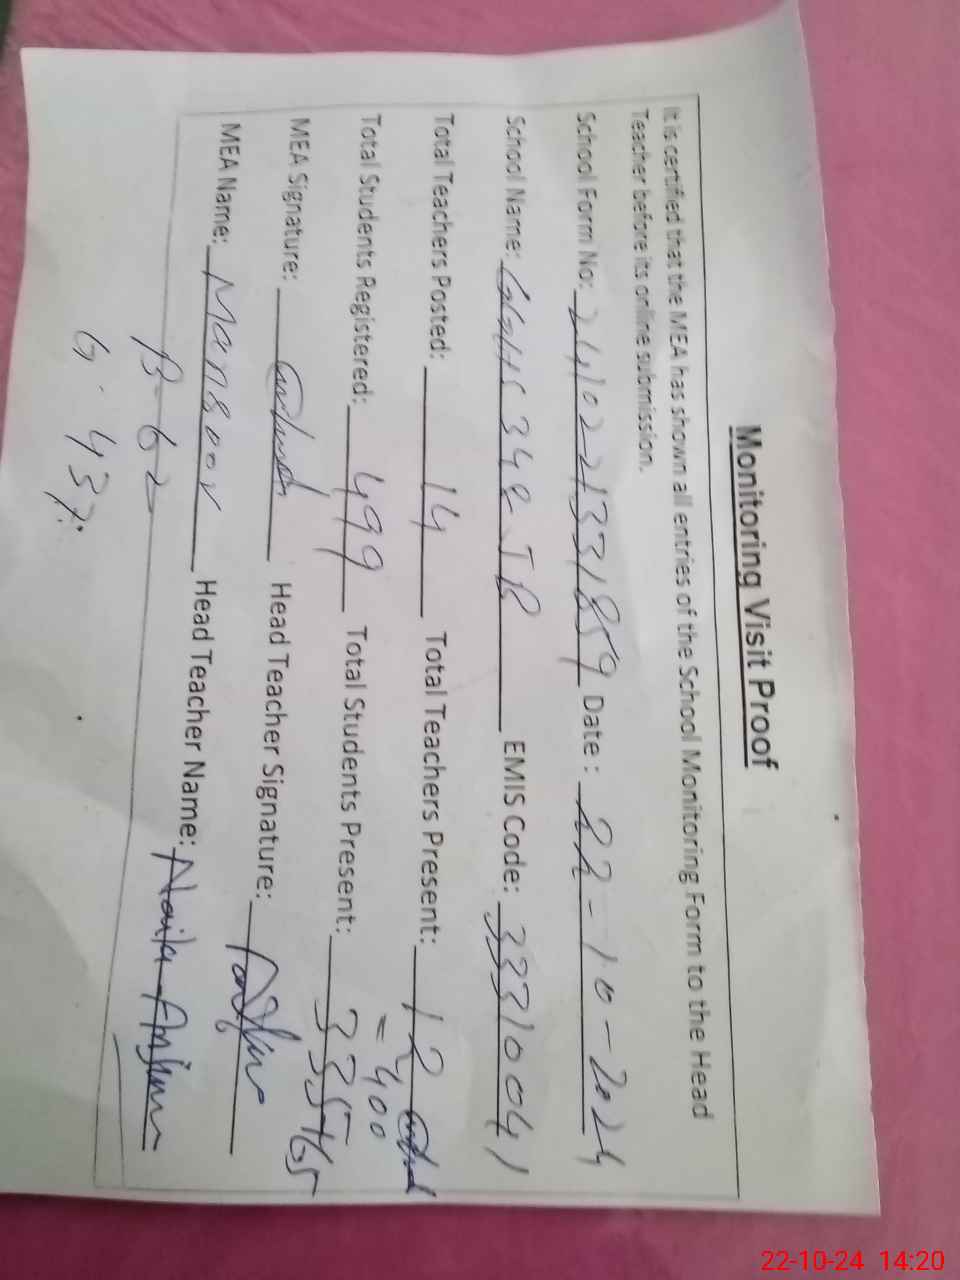 Monitoring Visit Proof
It is certified that the MEA has shown all entries of the School Monitoring Form to the Head
Teacher before its online submission.
School Form No: 241022133189 Date : 22-10-2024
School Name: GGHS 348 JB EMIS Code: 33310041
Total Teachers Posted: 14 Total Teachers Present: 12
= 400
Total Students Registered: 499 Total Students Present: 335+65
MEA Signature: Head Teacher Signature:
MEA Name: Mansoor Head Teacher Name: Naila Anjum
B-62
G. 437.
22-10-24 14:20